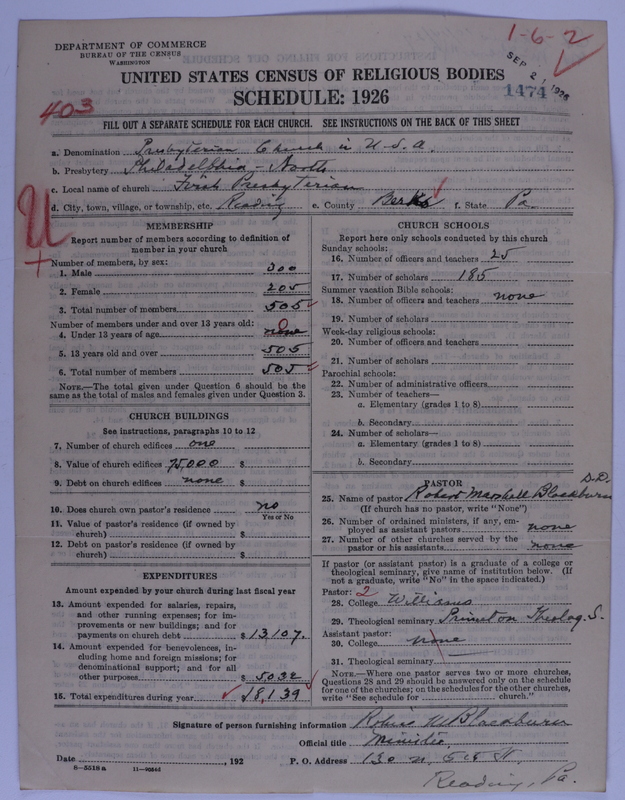 DEPARTMENT OF COMMERCE
BUREAU OF THE CENSUS
WASHINGTON
1-6-2
SEP 21 1926
1474
UNITED STATES CENSUS OF RELIGIOUS BODIES
SCHEDULE: 1926
403
FILL OUT A SEPARATE SCHEDULE FOR EACH CHURCH. SEE INSTRUCTIONS ON THE BACK OF THIS SHEET
a. Denomination Presbyterian Church in U.S.A.
b. Presbytery Philadelphia - North
c. Local name of church First Presbyterian
d. City, town, village, or township, etc. Reading e. County Berks f. State Pa.
U
MEMBERSHIP
Report number of members according to definition of
member in your church
Number of members, by sex:
1. Male 300
2. Female 205
3. Total number of members 505
Number of members under and over 13 years old:
4. Under 13 years of age none 0
5. 13 years old and over 505
6. Total number of members 505
NOTE.—The total given under Question 6 should be
same as the total of males and females given under Question 3.
CHURCH BUILDINGS
See instructions, paragraphs 10 to 12
7. Number of church edifices one
8. Value of church edifices 75,000 $
9. Debt on church edifices none $
10. Does church own pastor's residence no
Yes or No
11. Value of pastor's residence (if owned by
church) $
12. Debt on pastor's residence (if owned by
church) $
EXPENDITURES
Amount expended by your church during last fiscal year
13. Amount expended for salaries, repairs,
and other running expenses; for im-
provements or new buildings; and for
payments on church debt $13,107.
14. Amount expended for benevolences, in-
cluding home and foreign missions; for
denominational support; and for all
other purposes $5032
15. Total expenditures during year $18,139
CHURCH SCHOOLS
Report here only schools conducted by this church
Sunday schools:
16. Number of officers and teachers 25
17. Number of scholars 185
Summer vacation Bible schools:
18. Number of officers and teachers none
19. Number of scholars
Week-day religious schools:
20. Number of officers and teachers
21. Number of scholars
Parochial schools:
22. Number of administrative officers
23. Number of teachers—
a. Elementary (grades 1 to 8)
b. Secondary
24. Number of scholars—
a. Elementary (grades 1 to 8)
b. Secondary
PASTOR
25. Name of pastor Robert Marshall Blackburn D.D.
(If church has no pastor, write "None")
26. Number of ordained ministers, if any, em-
ployed as assistant pastors none
27. Number of other churches served by the
pastor or his assistants none
If pastor (or assistant pastor) is a graduate of a college or
theological seminary, give name of institution below. (If
not a graduate, write "No" in the space indicated.)
Pastor: 2
28. College Williams
29. Theological seminary Princeton Theolog. S.
Assistant pastor:
30. College none
31. Theological seminary
NOTE.—Where one pastor serves two or more churches,
Questions 28 and 29 should be answered only on the schedule
for one of the churches; on the schedules for the other churches,
write "See schedule for church."
Signature of person furnishing information Robert M Blackburn
Official title Minister
Date , 192 P. O. Address 130 N. 5th St.
8-5518a 11-9
Reading, Pa.